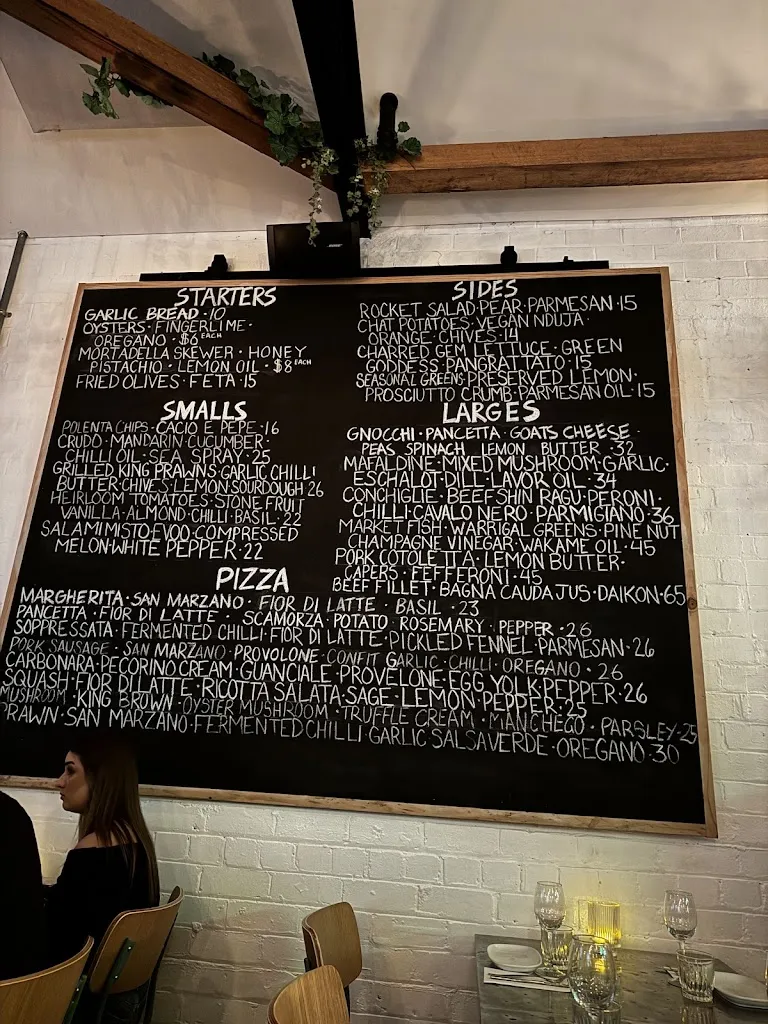 STARTERS
GARLIC BREAD · 10
OYSTERS · FINGERLIME ·
OREGANO · $6 EACH
MORTADELLA SKEWER · HONEY
PISTACHIO · LEMON OIL · $8 EACH
FRIED OLIVES · FETA · 15
SIDES
ROCKET SALAD · PEAR · PARMESAN · 15
CHAT POTATOES · VEGAN NDUJA ·
ORANGE · CHIVES · 14
CHARRED GEM LETTUCE · GREEN
GODDESS · PANGRATTATO · 15
SEASONAL GREENS · PRESERVED LEMON ·
PROSCIUTTO CRUMB · PARMESAN OIL · 15
SMALLS
POLENTA CHIPS · CACIO E PEPE · 16
CRUDO · MANDARIN · CUCUMBER ·
CHILLI OIL · SEA SPRAY · 25
GRILLED KING PRAWNS · GARLIC CHILLI
BUTTER · CHIVES · LEMON · SOURDOUGH 26
HEIRLOOM TOMATOES · STONE FRUIT
VANILLA · ALMOND · CHILLI · BASIL · 22
SALAMI MISTO · EVOO · COMPRESSED
MELON · WHITE PEPPER · 22
LARGES
GNOCCHI · PANCETTA · GOATS CHEESE ·
PEAS SPINACH LEMON BUTTER · 32
MAFALDINE · MIXED MUSHROOM · GARLIC ·
ESCHALOT · DILL · LAVOR OIL · 34
CONCHIGLIE · BEEF SHIN RAGU · PERONI ·
CHILLI · CAVALO NERO · PARMIGIANO · 36
MARKET FISH · WARRIGAL GREENS · PINE NUT
CHAMPAGNE VINEGAR · WAKAME OIL · 45
PORK COTOLETTA · LEMON BUTTER ·
CAPERS · FEFFERONI · 45
BEEF FILLET · BAGNA CAUDA JUS · DAIKON · 65
PIZZA
MARGHERITA · SAN MARZANO · FIOR DI LATTE · BASIL · 23
PANCETTA · FIOR DI LATTE · SCAMORZA · POTATO · ROSEMARY · PEPPER · 26
SOPPRESSATA · FERMENTED CHILLI · FIOR DI LATTE · PICKLED FENNEL · PARMESAN · 26
PORK SAUSAGE · SAN MARZANO · PROVOLONE · CONFIT GARLIC · CHILLI · OREGANO · 26
CARBONARA · PECORINO CREAM · GUANCIALE · PROVELONE · EGG YOLK · PEPPER · 26
SQUASH · FIOR DI LATTE · RICOTTA SALATA · SAGE · LEMON · PEPPER · 25
MUSHROOM · KING BROWN · OYSTER MUSHROOM · TRUFFLE CREAM · MANCHEGO · PARSLEY · 25
PRAWN · SAN MARZANO · FERMENTED CHILLI · GARLIC SALSA VERDE · OREGANO · 30